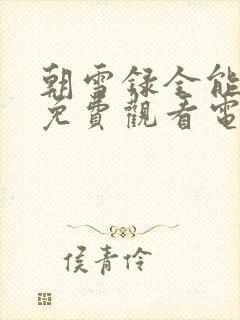 朝雪録全能
免費觀看電
侯青伶